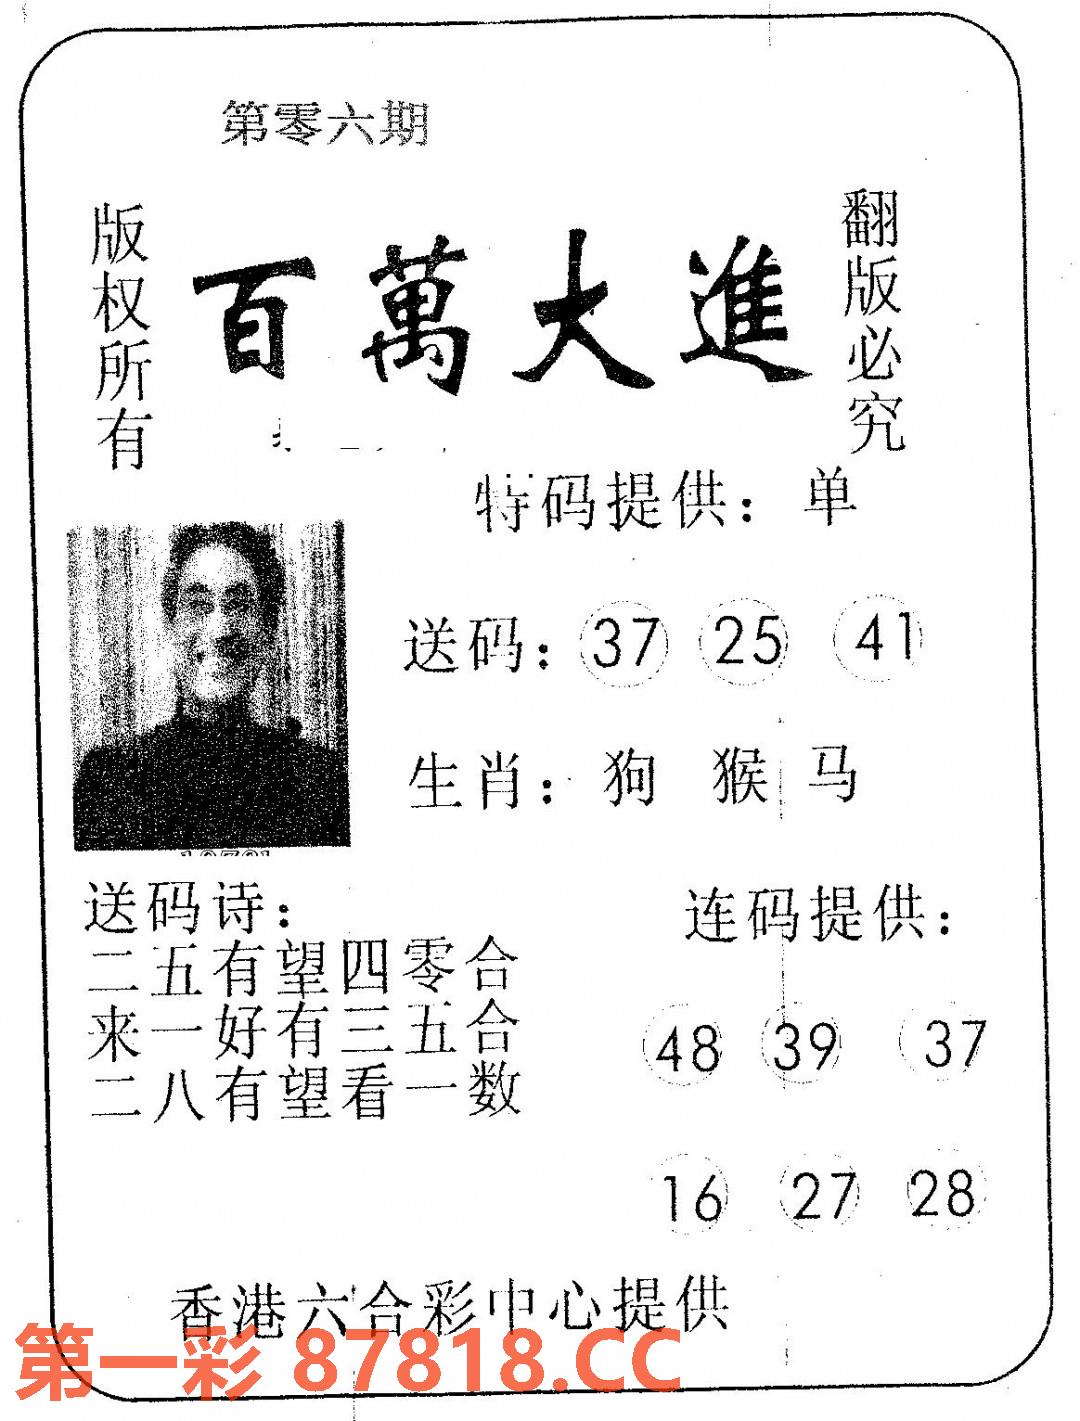 第零六期
版权所有
百萬大進
翻版必究
特码提供：单
送码：37 25 41
生肖：狗 猴 马
送码诗：
二五有望四零合
来一好有三五合
二八有望看一数
连码提供：
48 39 37
16 27 28
香港六合彩中心提供
第一彩 87818.CC